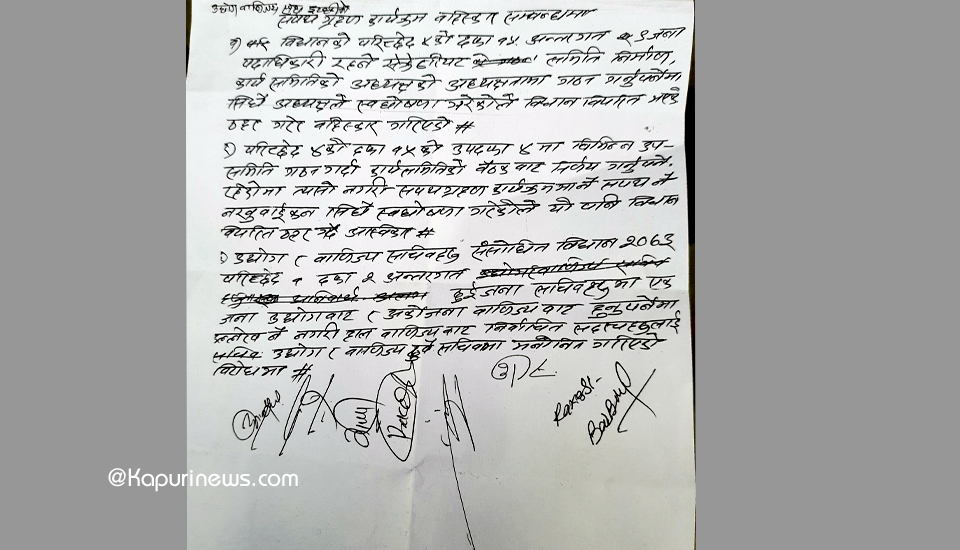 उद्योग वाणिज्य संघ
सपथ ग्रहण कार्यक्रम बहिस्कार सम्बन्धमा
१) विधानको परिच्छेद ४को दफा १५ अन्तरगत ९ जना
पदाधिकारी रहने सेक्रेटरियट समिति निर्माण,
कार्य समितिको अध्यक्षको अध्यक्षतामा गठन गर्नुपर्नेमा
सिधै अध्यक्षले स्वघोषणा गरेकोले विधान विपरित भएको
ठहर गरेर बहिस्कार गरिएको #
२) परिच्छेद ४को दफा १५ को उपदफा ४ मा विभिन्न उप-
समिति गठन गर्दा कार्यसमितिको बैठक बाट निर्णय गर्नुपर्ने
रहेकोमा त्यसो नगरी सपथग्रहण कार्यक्रममानै सपथ नै
नखुवाईकन सिधै स्वघोषणा गरेकोले यो पनि विधान
विपरित ठहर गर्दै अस्विकार #
३) उद्योग र वाणिज्य सचिवहरु संसोधित विधान २०६३
परिच्छेद १ दफा २ अन्तरगत
दुईजना सचिवहरुमा एक
जना उद्योगबाट र अर्कोजना वाणिज्य बाट हुनुपर्नेमा
उल्लेख नै नगरी हाल वाणिज्य बाट निर्वाचित सदस्यहरुलाई
उद्योग र वाणिज्य दुवै सचिवमा मनोनित गरिएको
विरोधमा #
Rakesh
@Kapurinews.com